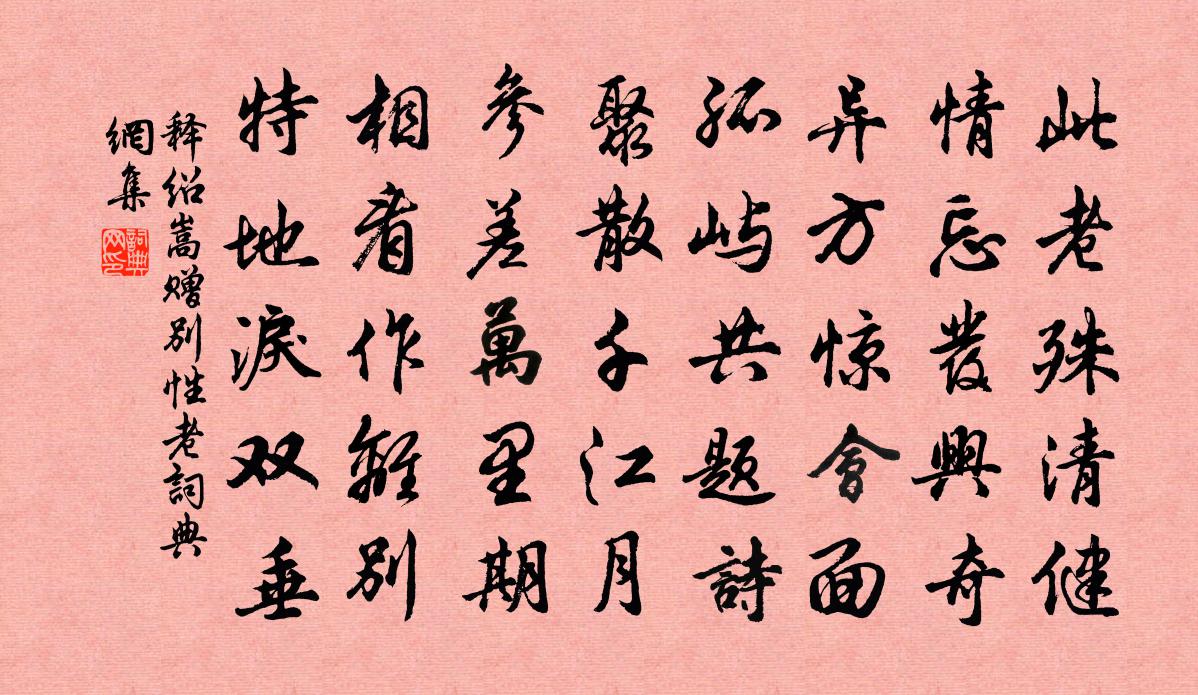 此老殊清健
情忘發興奇
异方惊會面
孤屿共题詩
聚散千江月
參差萬里期
相看作離别
特地淚双垂
释绍嵩赠别性老詞典
網集
詞典
网印